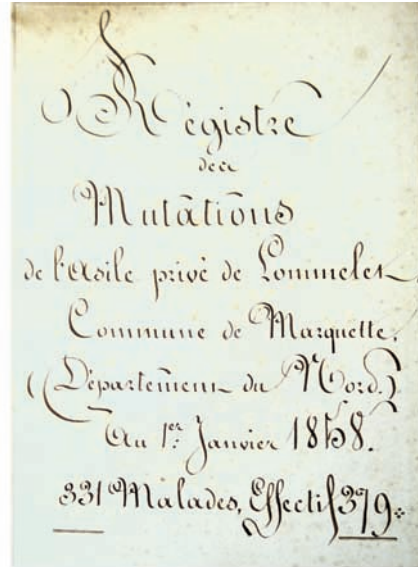 Régistre
des
Mutations
de l'Asile privé de Lommelet
Commune de Marquette.
(Département du Nord.)
Au 1er: Janvier 1858.
331 Malades, Effectif 379.